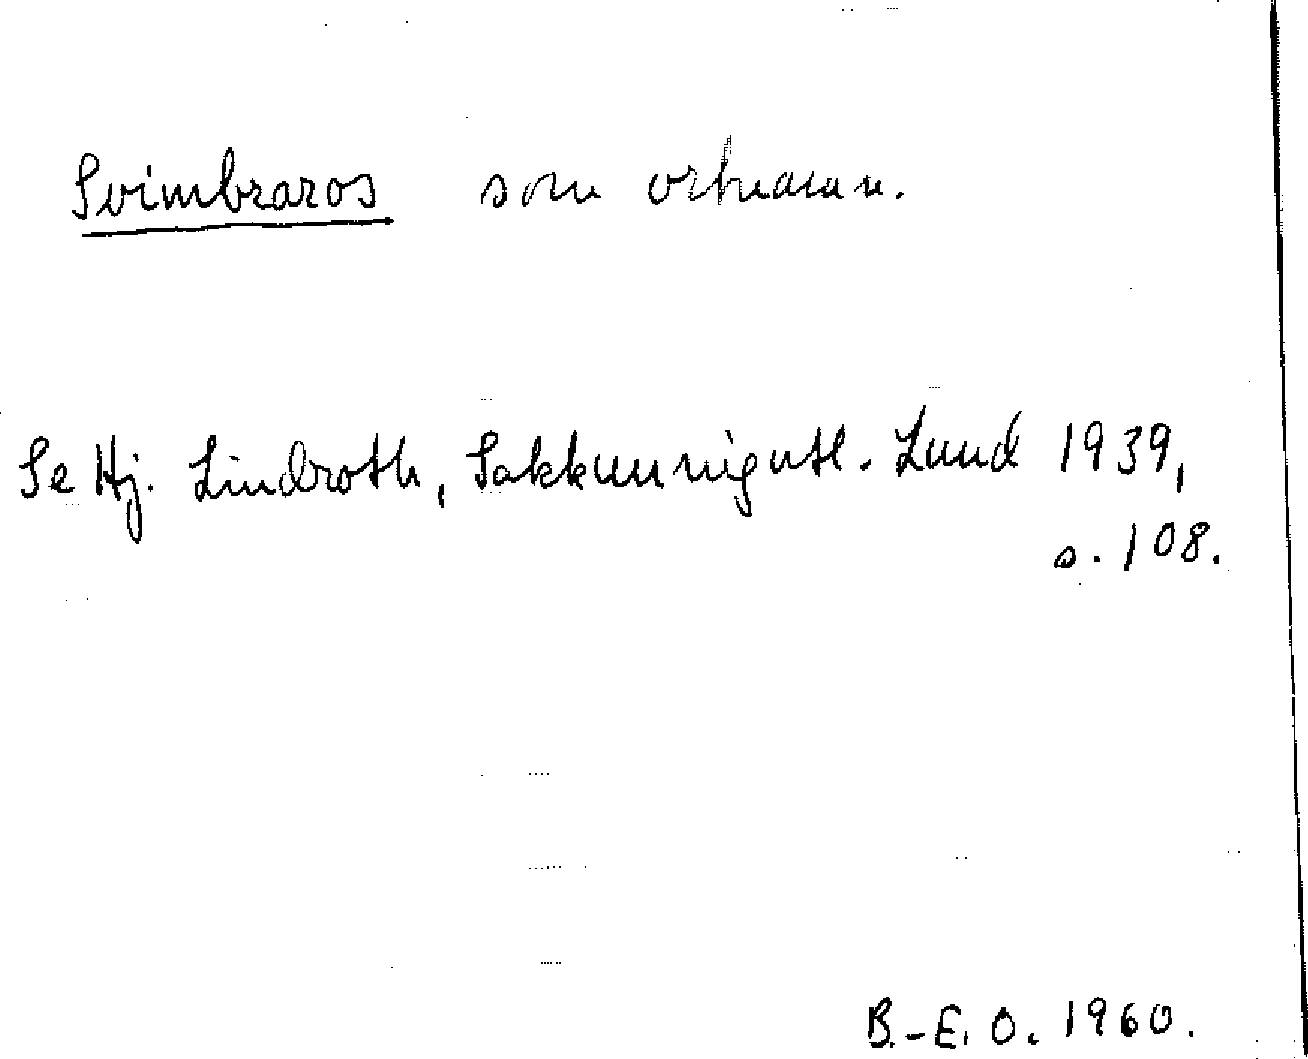 Svimbraros som ortnamn.
Se Hj. Lindroth, Sakkunnigutl. Lund 1939,
s. 108.
B.-E. O. 1960.